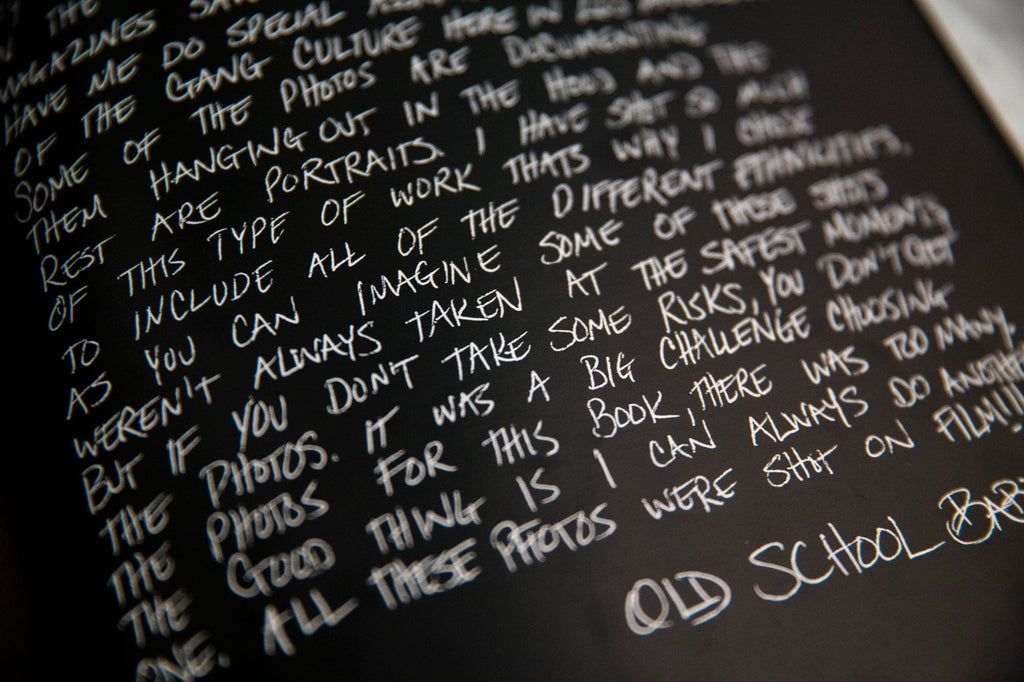 THE
MAGAZINES
HAVE ME DO SPECIAL
OF THE GANG CULTURE HERE IN LOS
SOME OF THE PHOTOS ARE DOCUMENTING
THEM HANGING OUT IN THE HOOD AND THE
REST ARE PORTRAITS. I HAVE SHOT SO MUCH
OF THIS TYPE OF WORK THATS WHY I CHOSE
TO INCLUDE ALL OF THE DIFFERENT ETHNICITIES,
AS YOU CAN IMAGINE SOME OF THESE SHOTS
WEREN'T ALWAYS TAKEN AT THE SAFEST MOMENTS
BUT IF YOU DON'T TAKE SOME RISKS, YOU DON'T GET
THE PHOTOS. IT WAS A BIG CHALLENGE CHOOSING
THE PHOTOS FOR THIS BOOK, THERE WAS TOO MANY.
THE GOOD THING IS I CAN ALWAYS DO ANOTHER
ONE. ALL THESE PHOTOS WERE SHOT ON FILM!!!
OLD SCHOOL